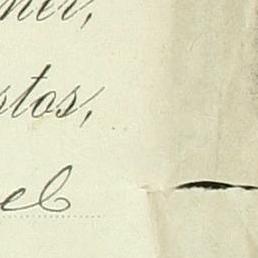 ner,
stos,
eb